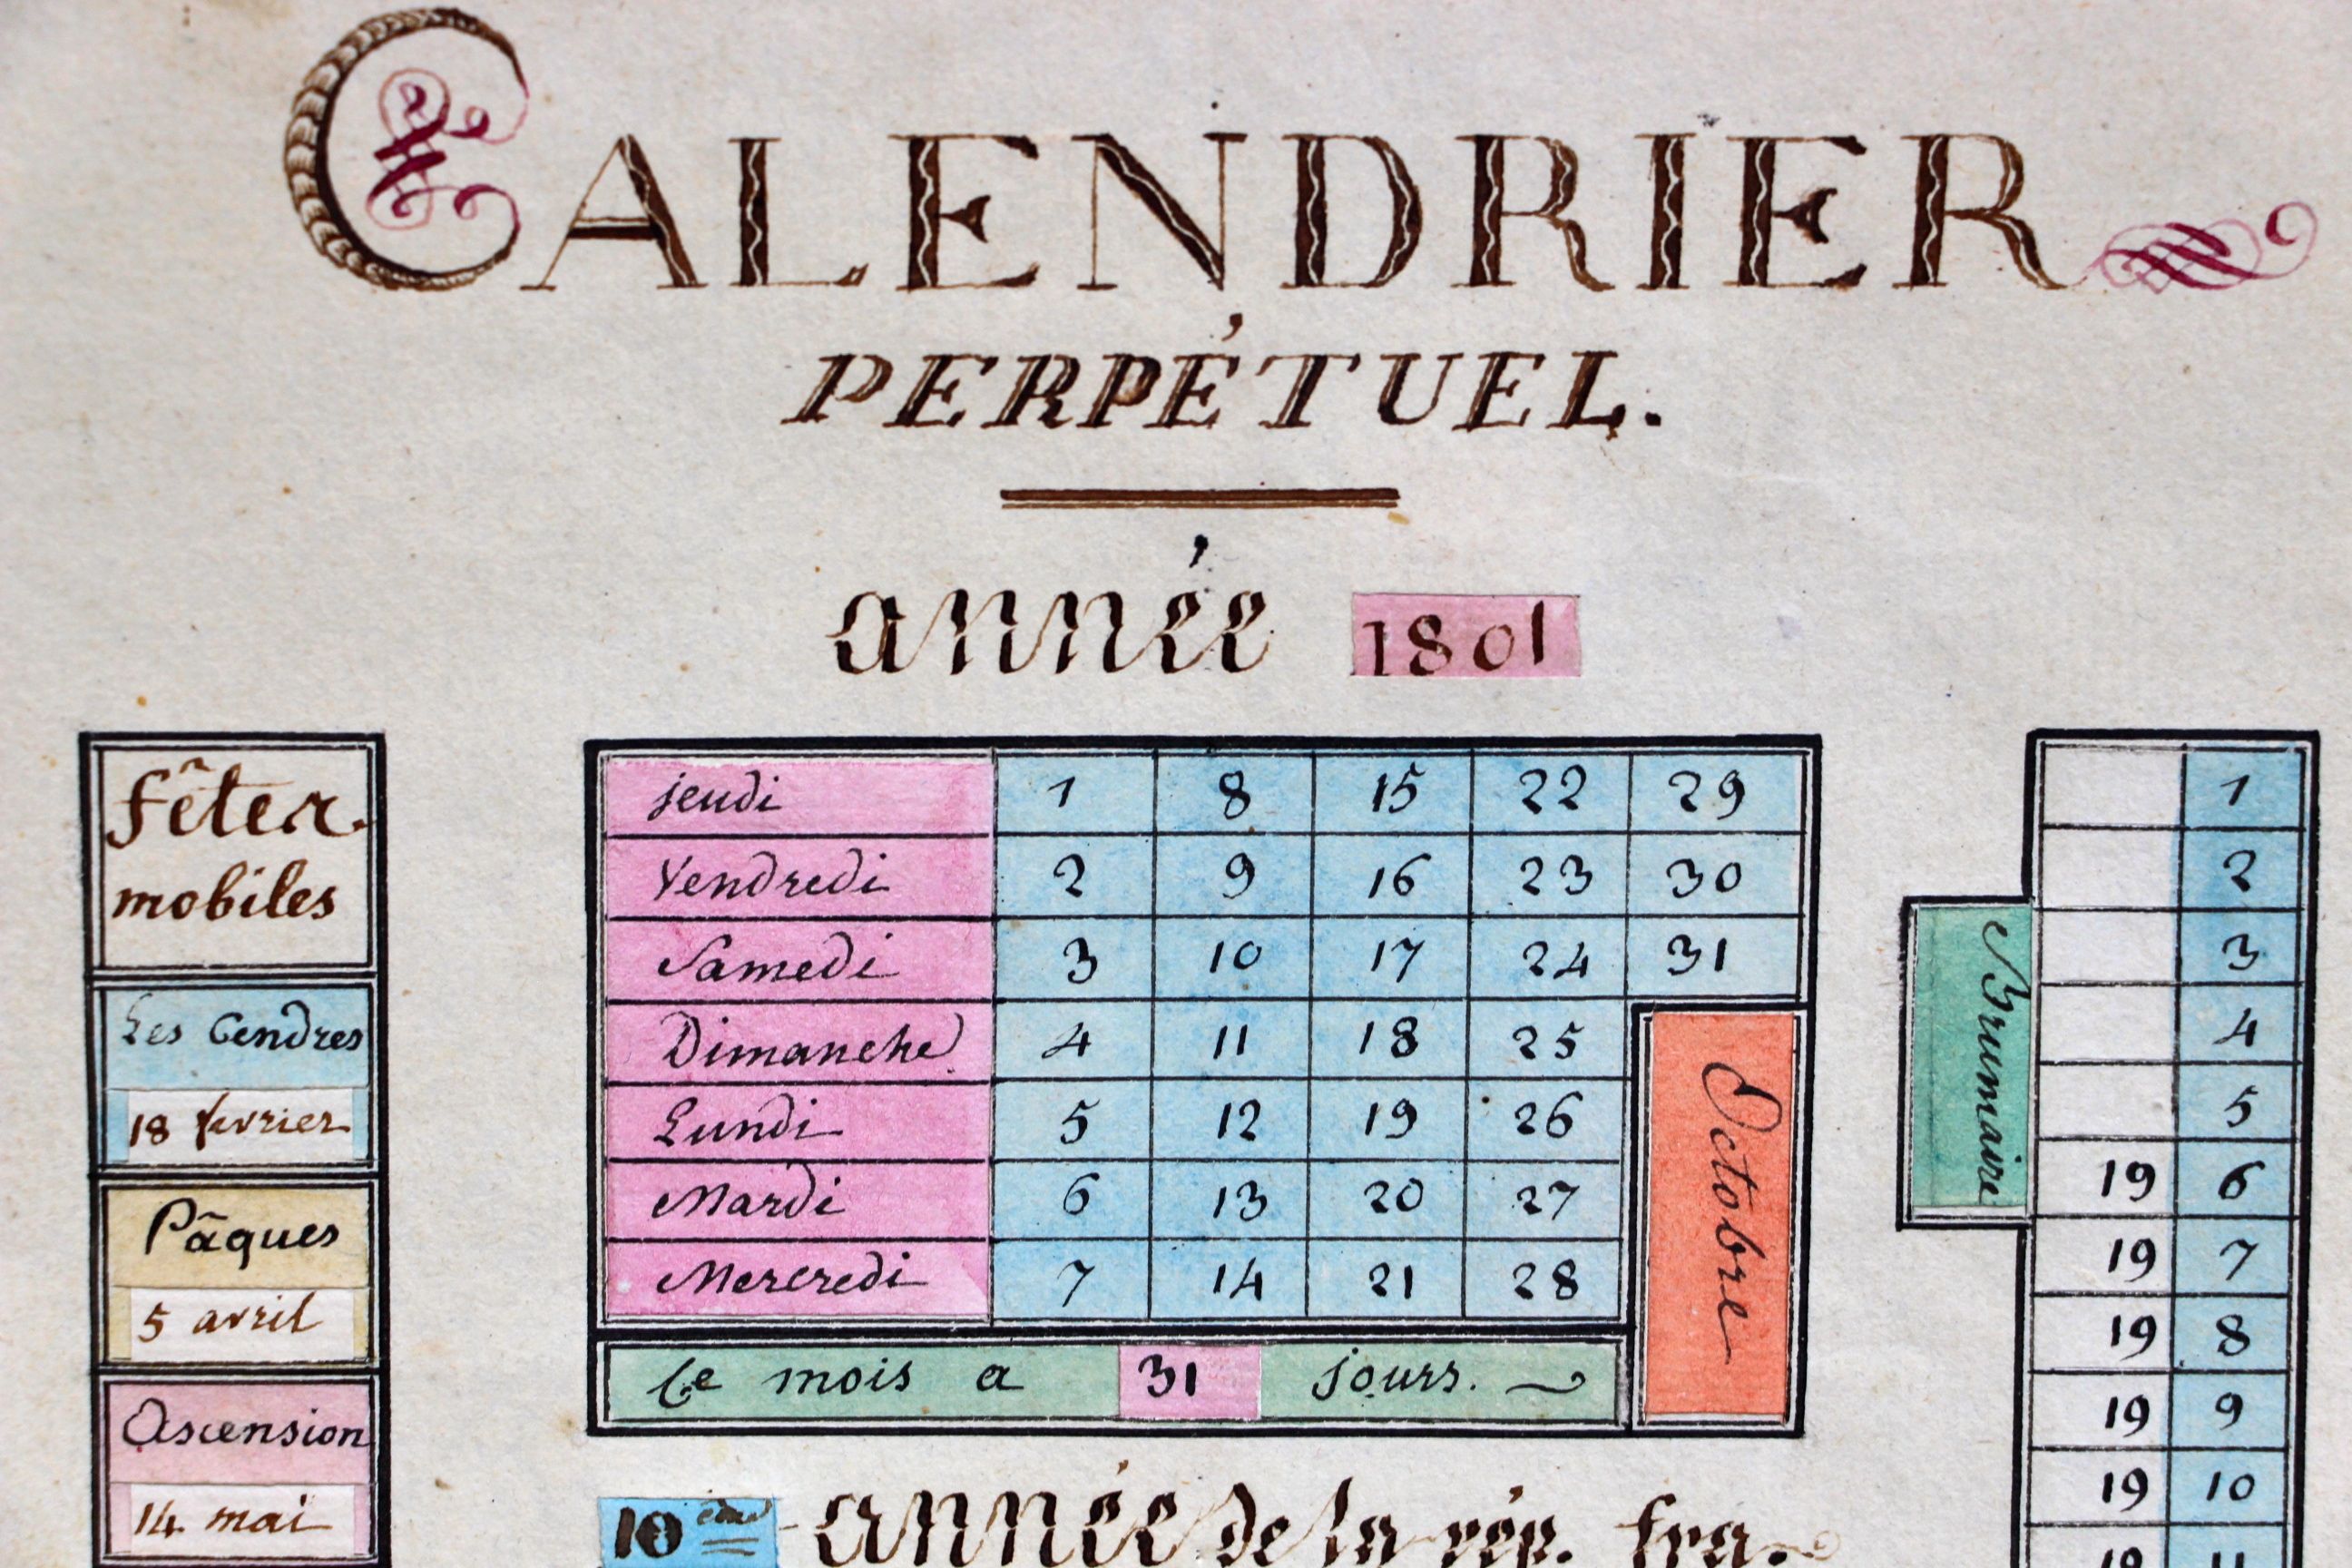 CALENDRIER
PERPÉTUEL.
année 1801
fêtes
mobiles
Les Cendres
18 fevrier
Pâques
5 avril
Ascension
14 mai
jeudi 1 8 15 22 29
Vendredi 2 9 16 23 30
Samedi 3 10 17 24 31
Dimanche 4 11 18 25
Lundi 5 12 19 26
Mardi 6 13 20 27
Mercredi 7 14 21 28
Octobre
Ce mois a 31 jours.
10ème année de la rép. fra.
Brumaire
1
2
3
4
5
19 6
19 7
19 8
19 9
19 10
19 11